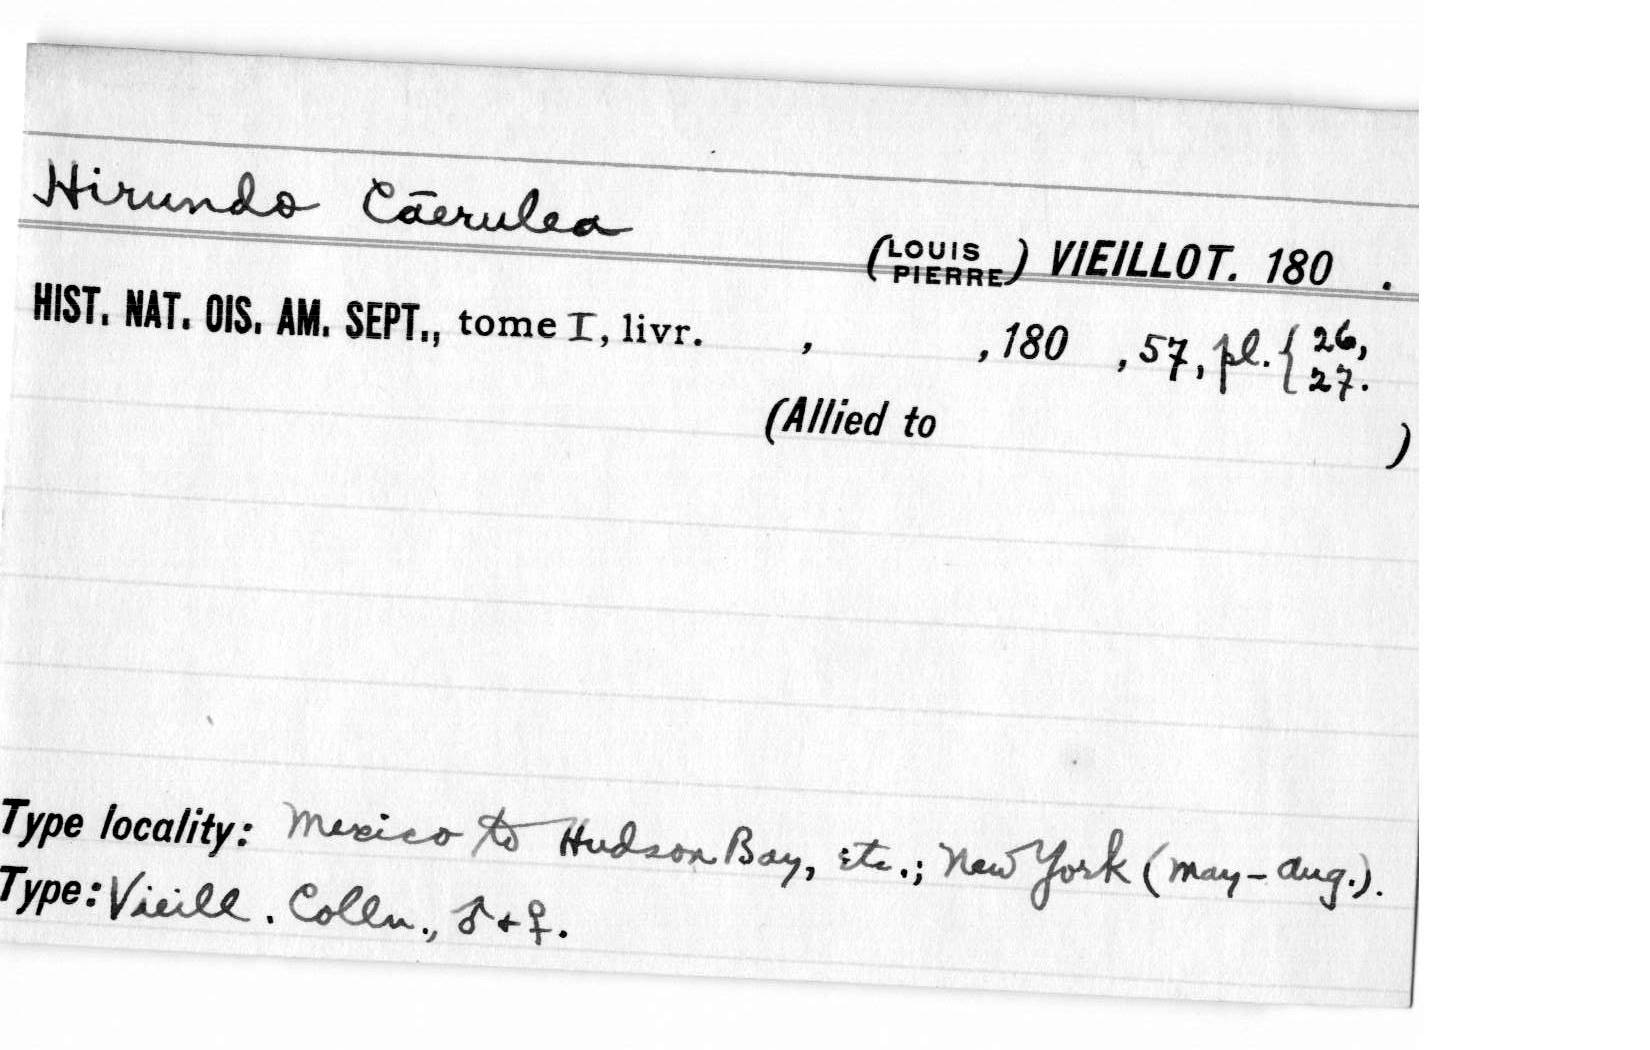 Hirundo Cāerulea
(LOUIS PIERRE) VIEILLOT. 180 .
HIST. NAT. OIS. AM. SEPT., tome I, livr. , , 180 , 57, pl. { 26, 27.
(Allied to )
Type locality: Mexico to Hudson Bay, etc.; New York (May-Aug.).
Type: Vieill. Colln., ♂ + ♀.